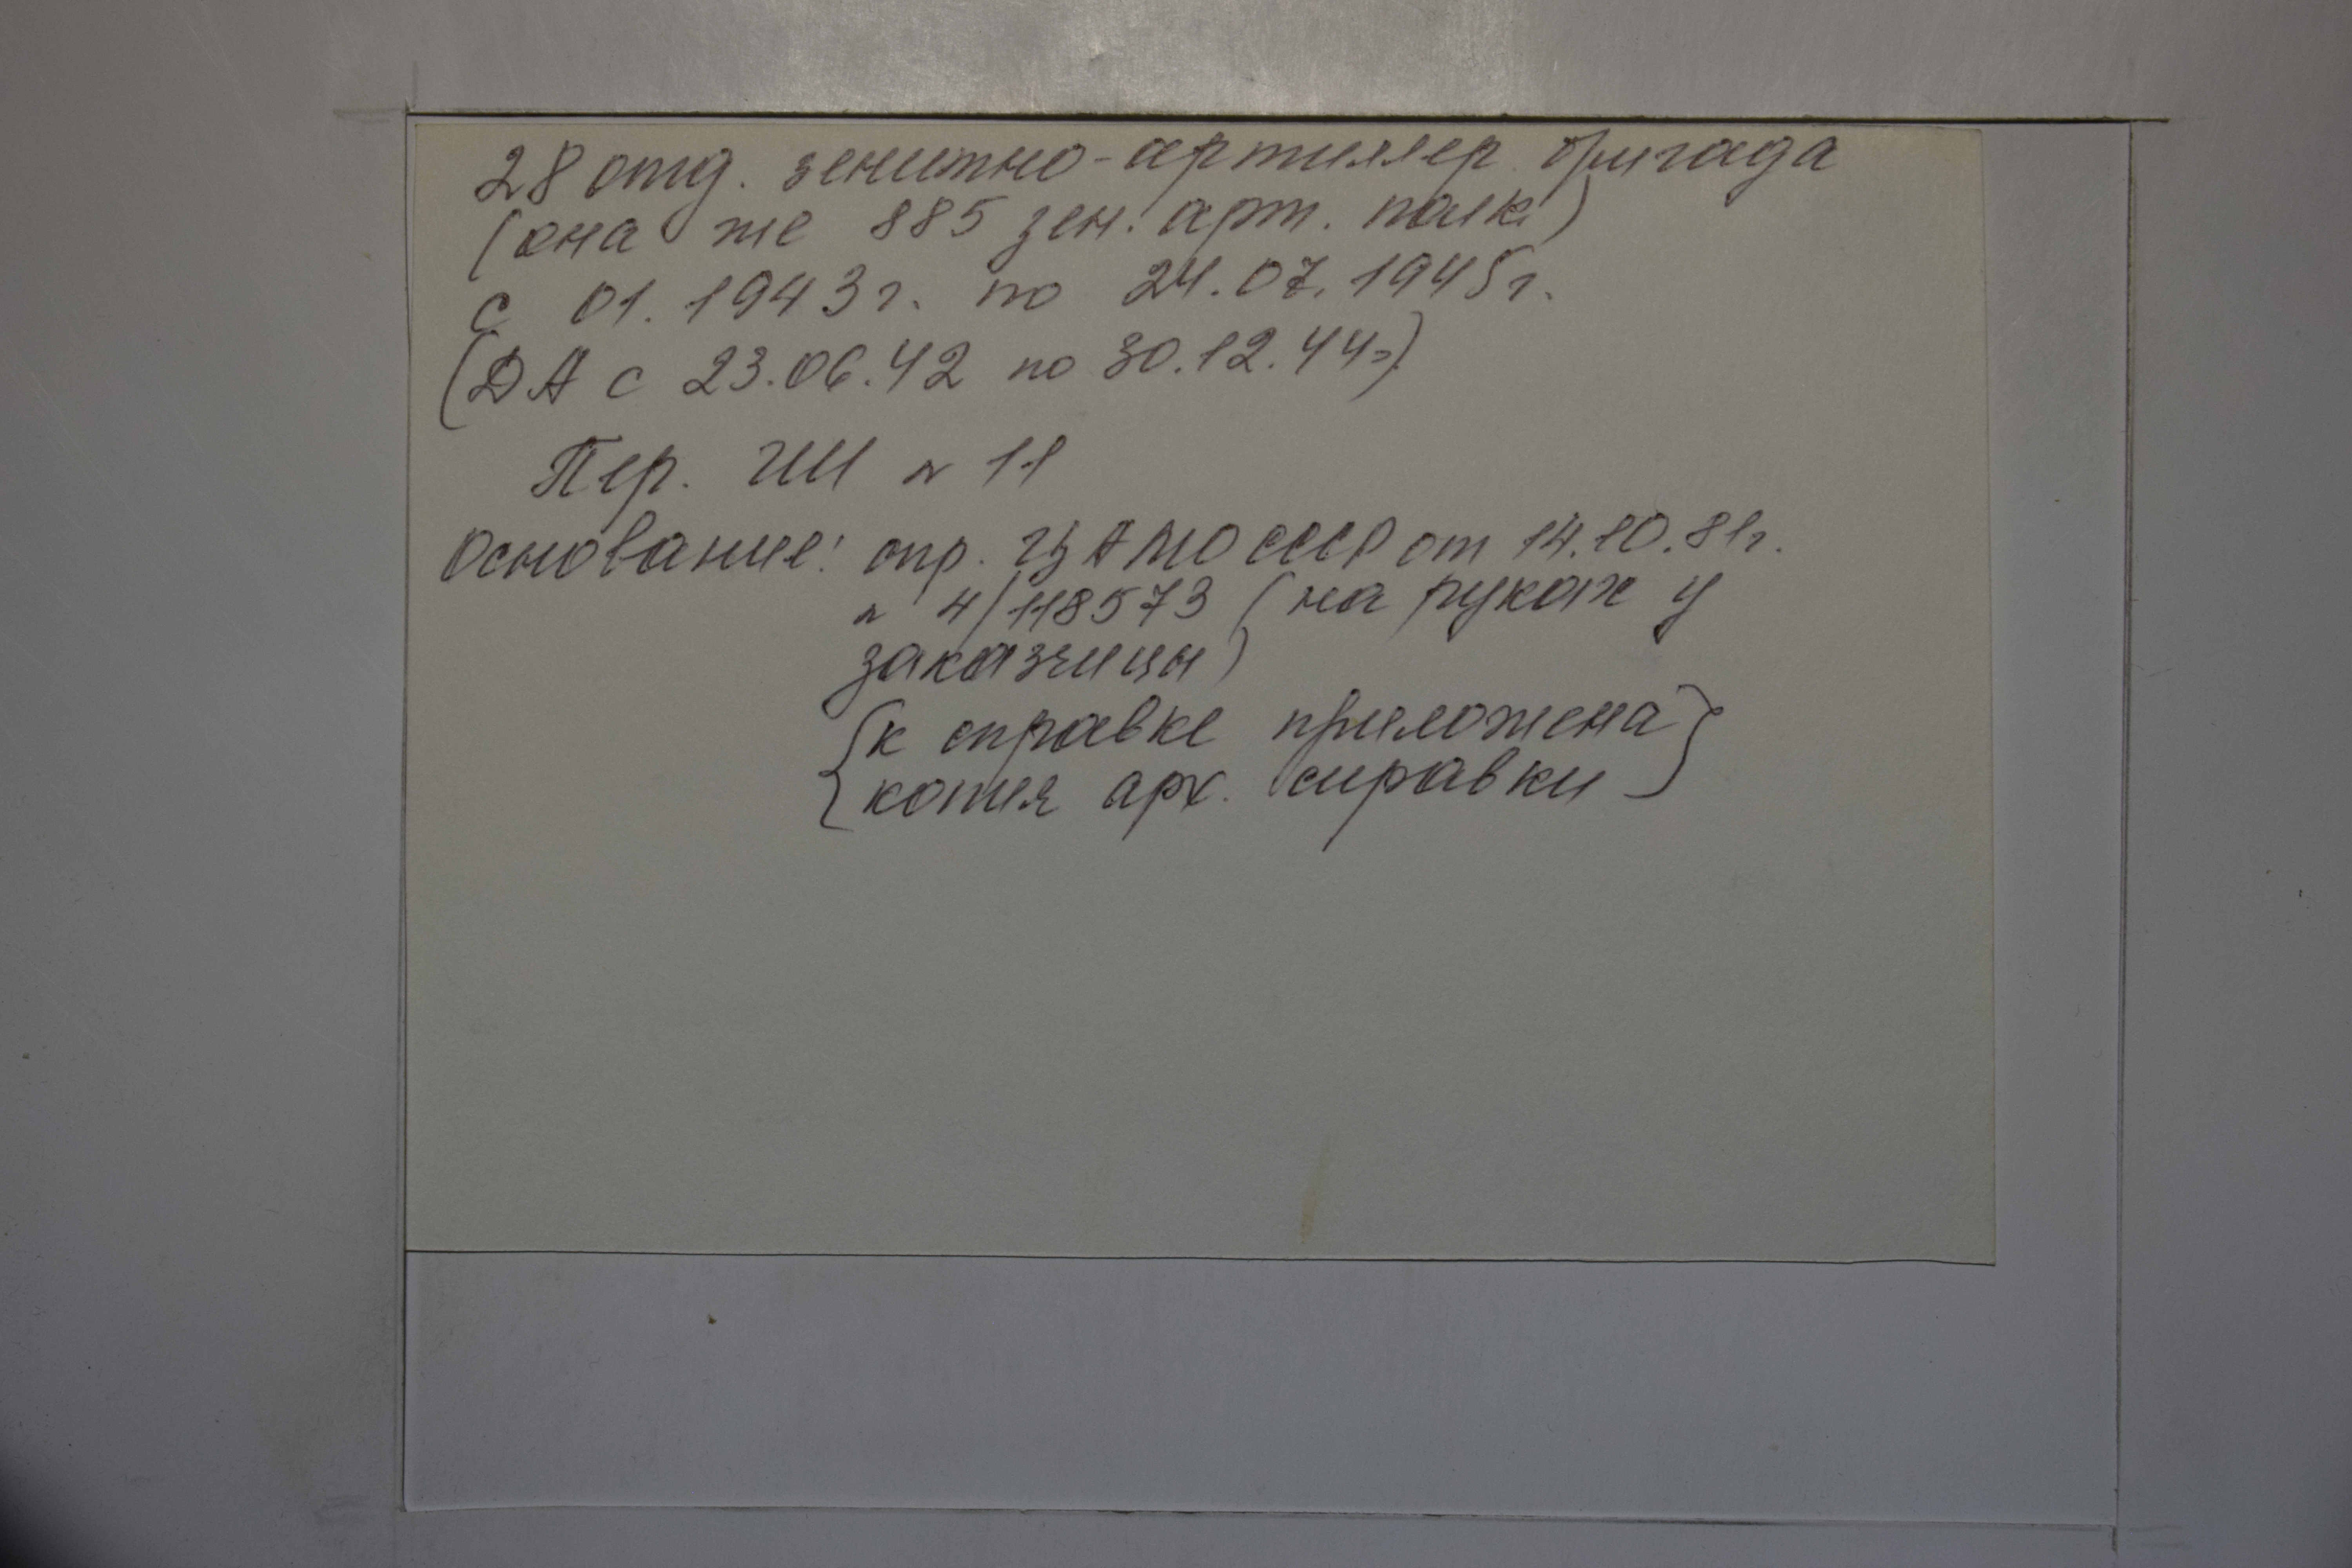 28 отд. зенитно-артиллер. бригада
(она же 885 зен. арт. полк)
с 01.1943 г. по 24.07.1945 г.
(ДА с 23.06.42 по 30.12.44г)
Пер. ГШ № 11
Основание: спр. ЦАМО СССР от 14.10.81г.
№ 4/118573 (на руках у
заказчицы)
{к справке приложена}
{копия арх. справки}